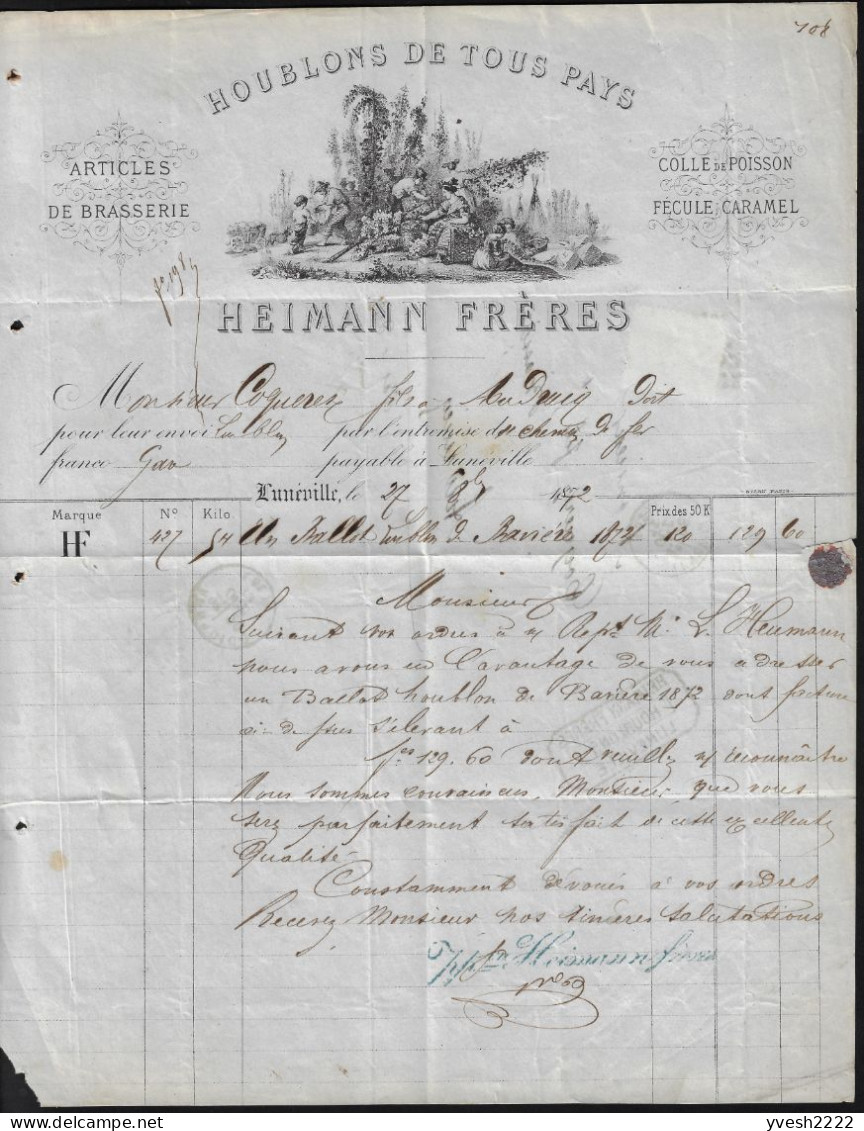 708
HOUBLONS DE TOUS PAYS
ARTICLES
DE BRASSERIE
COLLE DE POISSON
FÉCULE, CARAMEL
HEIMANN FRÈRES
Monsieur fils à Doit
pour leur envoi par l'entremise du chemin de fer
franco Gare payable à Lunéville
Lunéville, le 27 1872
Marque Nº Kilo. Prix des 50 K
HF 427 54 Un Ballot houblon de Bavière 1872 120 129 60
Monsieur
Suivant vos ordres à n/ Rept. Mr. L. Heumann
nous avons eu l'avantage de vous adresser
un Ballot houblon de Bavière 1872 dont facture
ci-dessus s'élevant à
fcs 129.60 dont veuillez n/ reconnaître
Nous sommes convaincus, Monsieur, que vous
serez parfaitement satisfait de cette excellente
Qualité.
Constamment dévoués à vos ordres
Recevez Monsieur nos sincères salutations
Heimann frères
yvesh2222